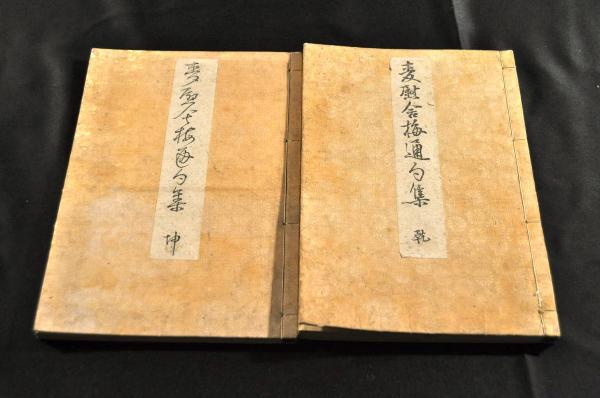 麦慰舎梅通句集
乾
麦慰舎梅通句集
坤